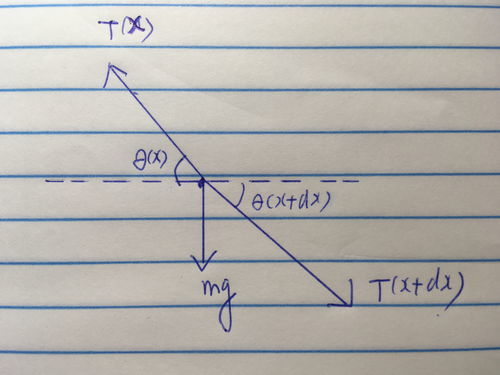 T(x)
θ(x)
θ(x+dx)
mg
T(x+dx)